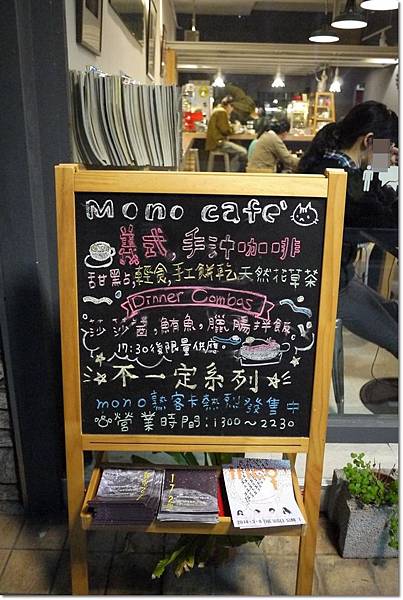 mono cafe'
義式,手沖咖啡
甜點,輕食,手工餅乾 天然花草茶
Dinner Combos
莎莎醬,鮪魚,臘腸拌飯
17:30後限量供應
☆不一定系列☆
mono熟客卡熱烈發售中
營業時間:1300~2230